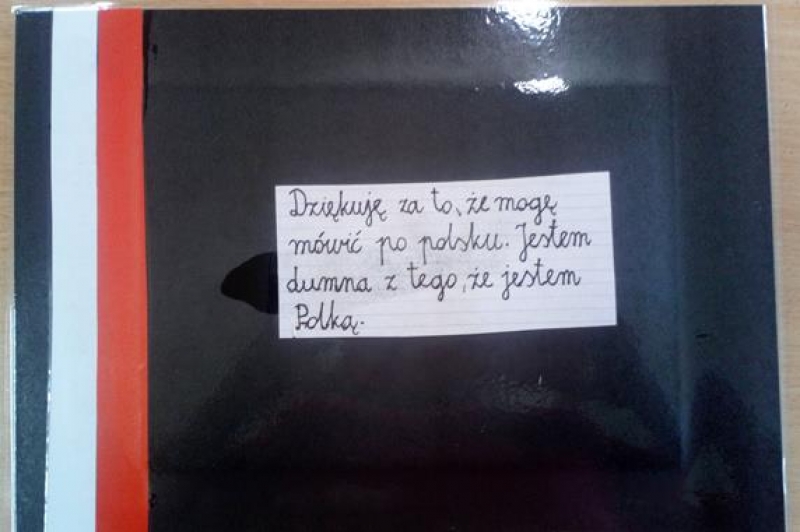 Dziękuję za to, że mogę
mówić po polsku. Jestem
dumna z tego, że jestem
Polką.